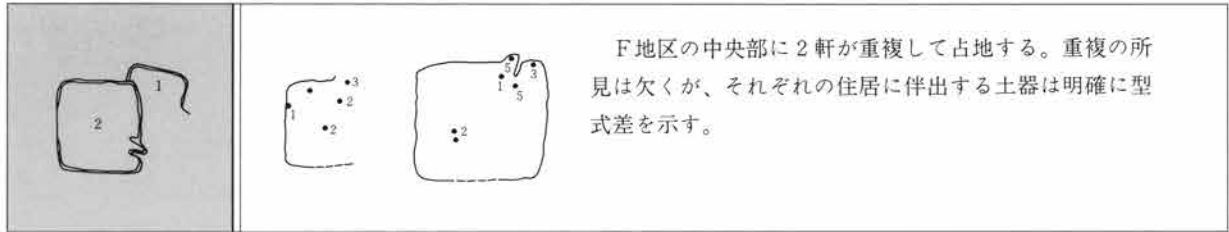 1
2
3
2
1
2
5
3
1
5
2
F地区の中央部に2軒が重複して占地する。重複の所
見は欠くが、それぞれの住居に伴出する土器は明確に型
式差を示す。